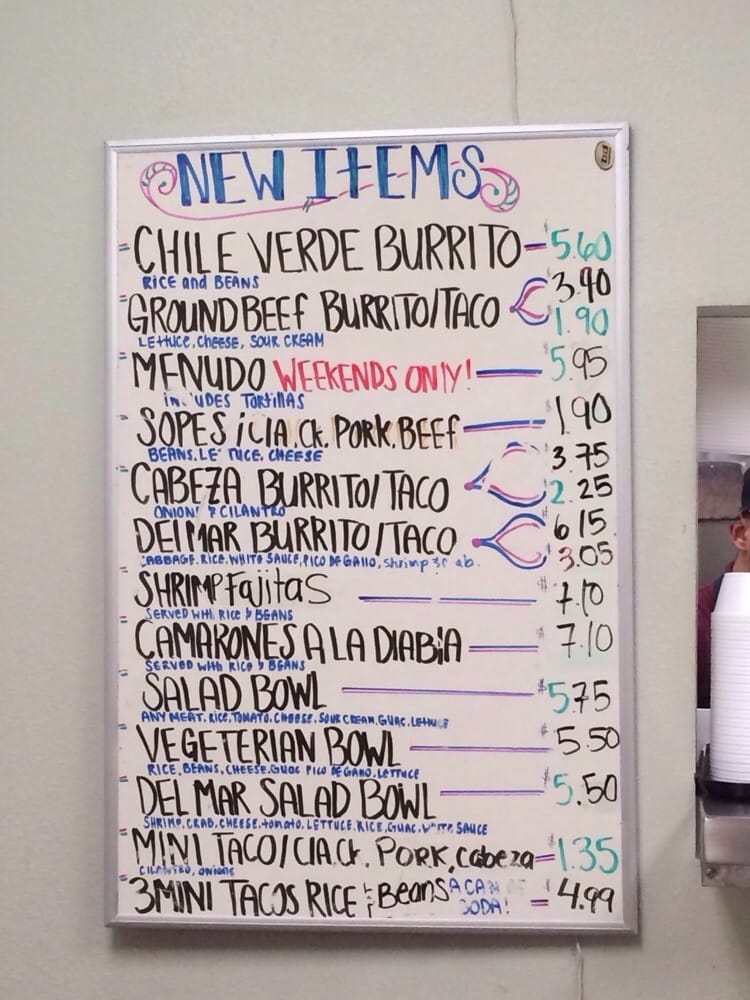 NEW ITEMS
CHILE VERDE BURRITO - $5.60
RICE and BEANS
GROUND BEEF BURRITO/TACO $3.90
$1.90
LETTUCE, CHEESE, SOUR CREAM
MENUDO WEEKENDS ONLY! $5.95
TORTILLAS
SOPES Ck. PORK. BEEF $1.90
BEANS, CHEESE
CABEZA BURRITO/TACO $3.75
$2.25
ONION & CILANTRO
DEL MAR BURRITO/TACO $6.15
$3.05
CABBAGE, RICE, WHITE SAUCE, PICO DE GALLO, shrimp
SHRIMP Fajitas $7.10
SERVED with RICE & BEANS
CAMARONES A LA DIABlA $7.10
SERVED with RICE & BEANS
SALAD BOWL $5.75
ANY MEAT, RICE, TOMATO, CHEESE, SOUR CREAM, GUAC, LETTUCE
VEGETERIAN BOWL $5.50
RICE, BEANS, CHEESE, GUAC PICO DE GALLO, LETTUCE
DEL MAR SALAD BOWL $5.50
SHRIMP, CRAB, CHEESE, tomato, LETTUCE, RICE, GUAC, WHITE SAUCE
MINI TACO/CIA. Ck. PORK, cabeza = 1.35
CILANTRO, onions
3 MINI TACOS RICE & Beans A CAN OF $4.99
SODA!